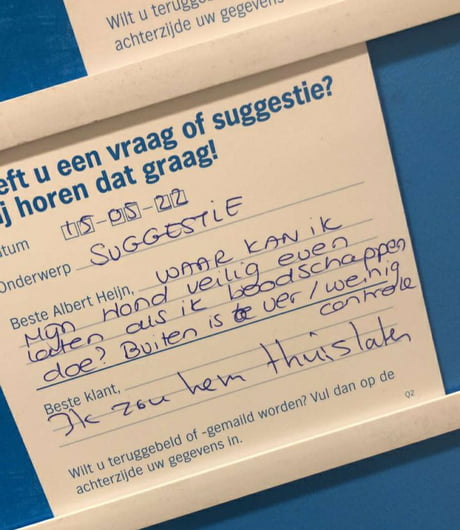 Wilt u terugge
achterzijde uw gegevens
eft u een vraag of suggestie?
ij horen dat graag!
atum 15-05-22
Onderwerp SUGGESTIE
Beste Albert Heijn, WAAR KAN IK
Mijn Hond veilig even
laten als ik boodschappen
doe? Buiten is te ver/weinig
controle
Beste Klant,
Ik zou hem thuislaten
Wilt u teruggebeld of -gemaild worden? Vul dan op de
achterzijde uw gegevens in.
Q2